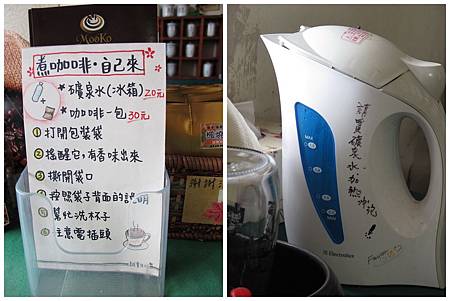 MooKo
煮咖啡·自己來
★礦泉水(冰箱)20元
★咖啡一包 30元
①打開包裝袋
②搖醒它,有香味出來
③撕開袋口
④按照袋子背面的說明
⑤幫忙洗杯子
⑥注意電插頭
謝謝
請買礦泉水加熱沖泡
MAX
Electrolux